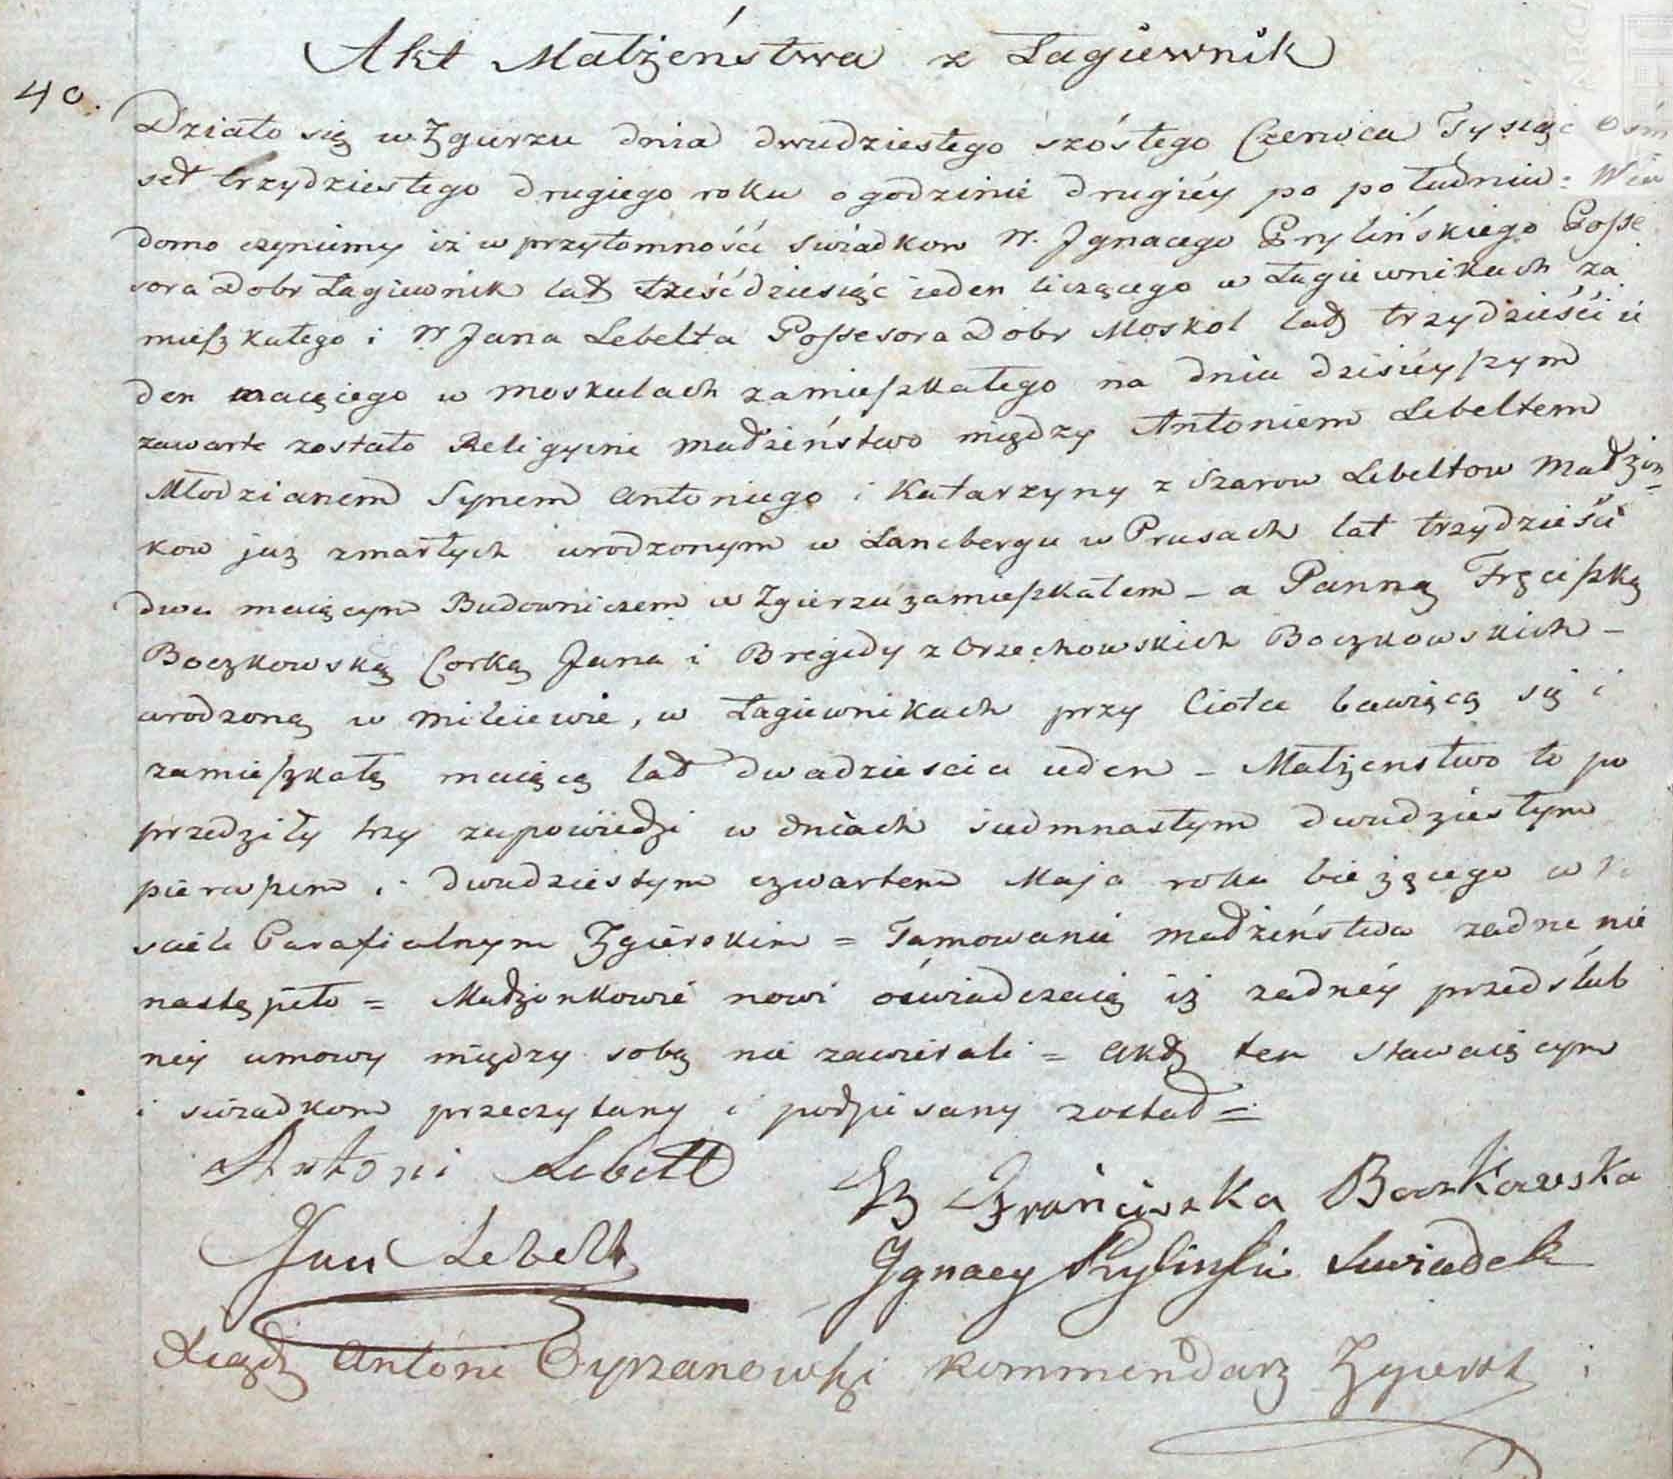 Akt Małżeństwa z Łagiewnik
40.
Działo się w Zgierzu dnia dwudziestego szóstego Czerwca Tysiąc ośm
set trzydziestego drugiego roku o godzinie drugiéy po południu: Wia
domo czyniemy iż w przytomności swiadkow W. Jgnacego Prylińskiego Posse
sora Dobr Łagiewnik lat sześćdziesiąc ieden liczącego w Łagiewnikach za
mieszkałego i W Jana Lebelta Possesora Dobr Moskol lat trzydzieści ie
den maiącego w Moskulach zamieszkałego na dniu dzisieyszym
zawarte zostało Religyine małżeństwo między Antoniem Lebeltem
Młodzianem Synem Antoniego i Katarzyny z Szarow Lebeltow Małżon
kow już zmarłych urodzonym w Lancbergu w Prusach lat trzydzieści
dwa maiącym Budowniczem w Zgierzu zamieszkałem – a Panną Fręciszką
Boczkowską Corką Jana i Bregidy z Orzechowskich Boczkowskich –
urodzoną w Mileiewie, w Łagiewnikach przy Ciotce bawiącą się i
zamieszkałą maiącą lat dwadziescia ieden – Małżenstwo to po
przedziły trzy zapowiedzi w dniach siedmnastym dwudziestym
pierwszem i dwudziestym czwartem Maja roku bieżącego w
sciele Parafialnym Zgierskim = Tamowanie małżeństwa zadne nie
nastąpiło = Małżonkowie nowi oświadczaią iż zadnéy przedślub
ney umowy między sobą nie zawierali = Akt ten stawaiącym
i swiadkom przeczytany i podpisany został =
Antoni Lebelt
Franciszka Boczkowska
Jan Lebelt
Jgnacy Prylinski Swiadek
Xiądz Antoni Cyrzanowski Kommendarz Zgierski